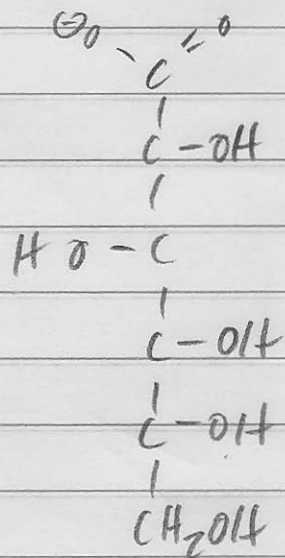 ⊖O O
C
C-OH
HO-C
C-OH
C-OH
CH₂OH